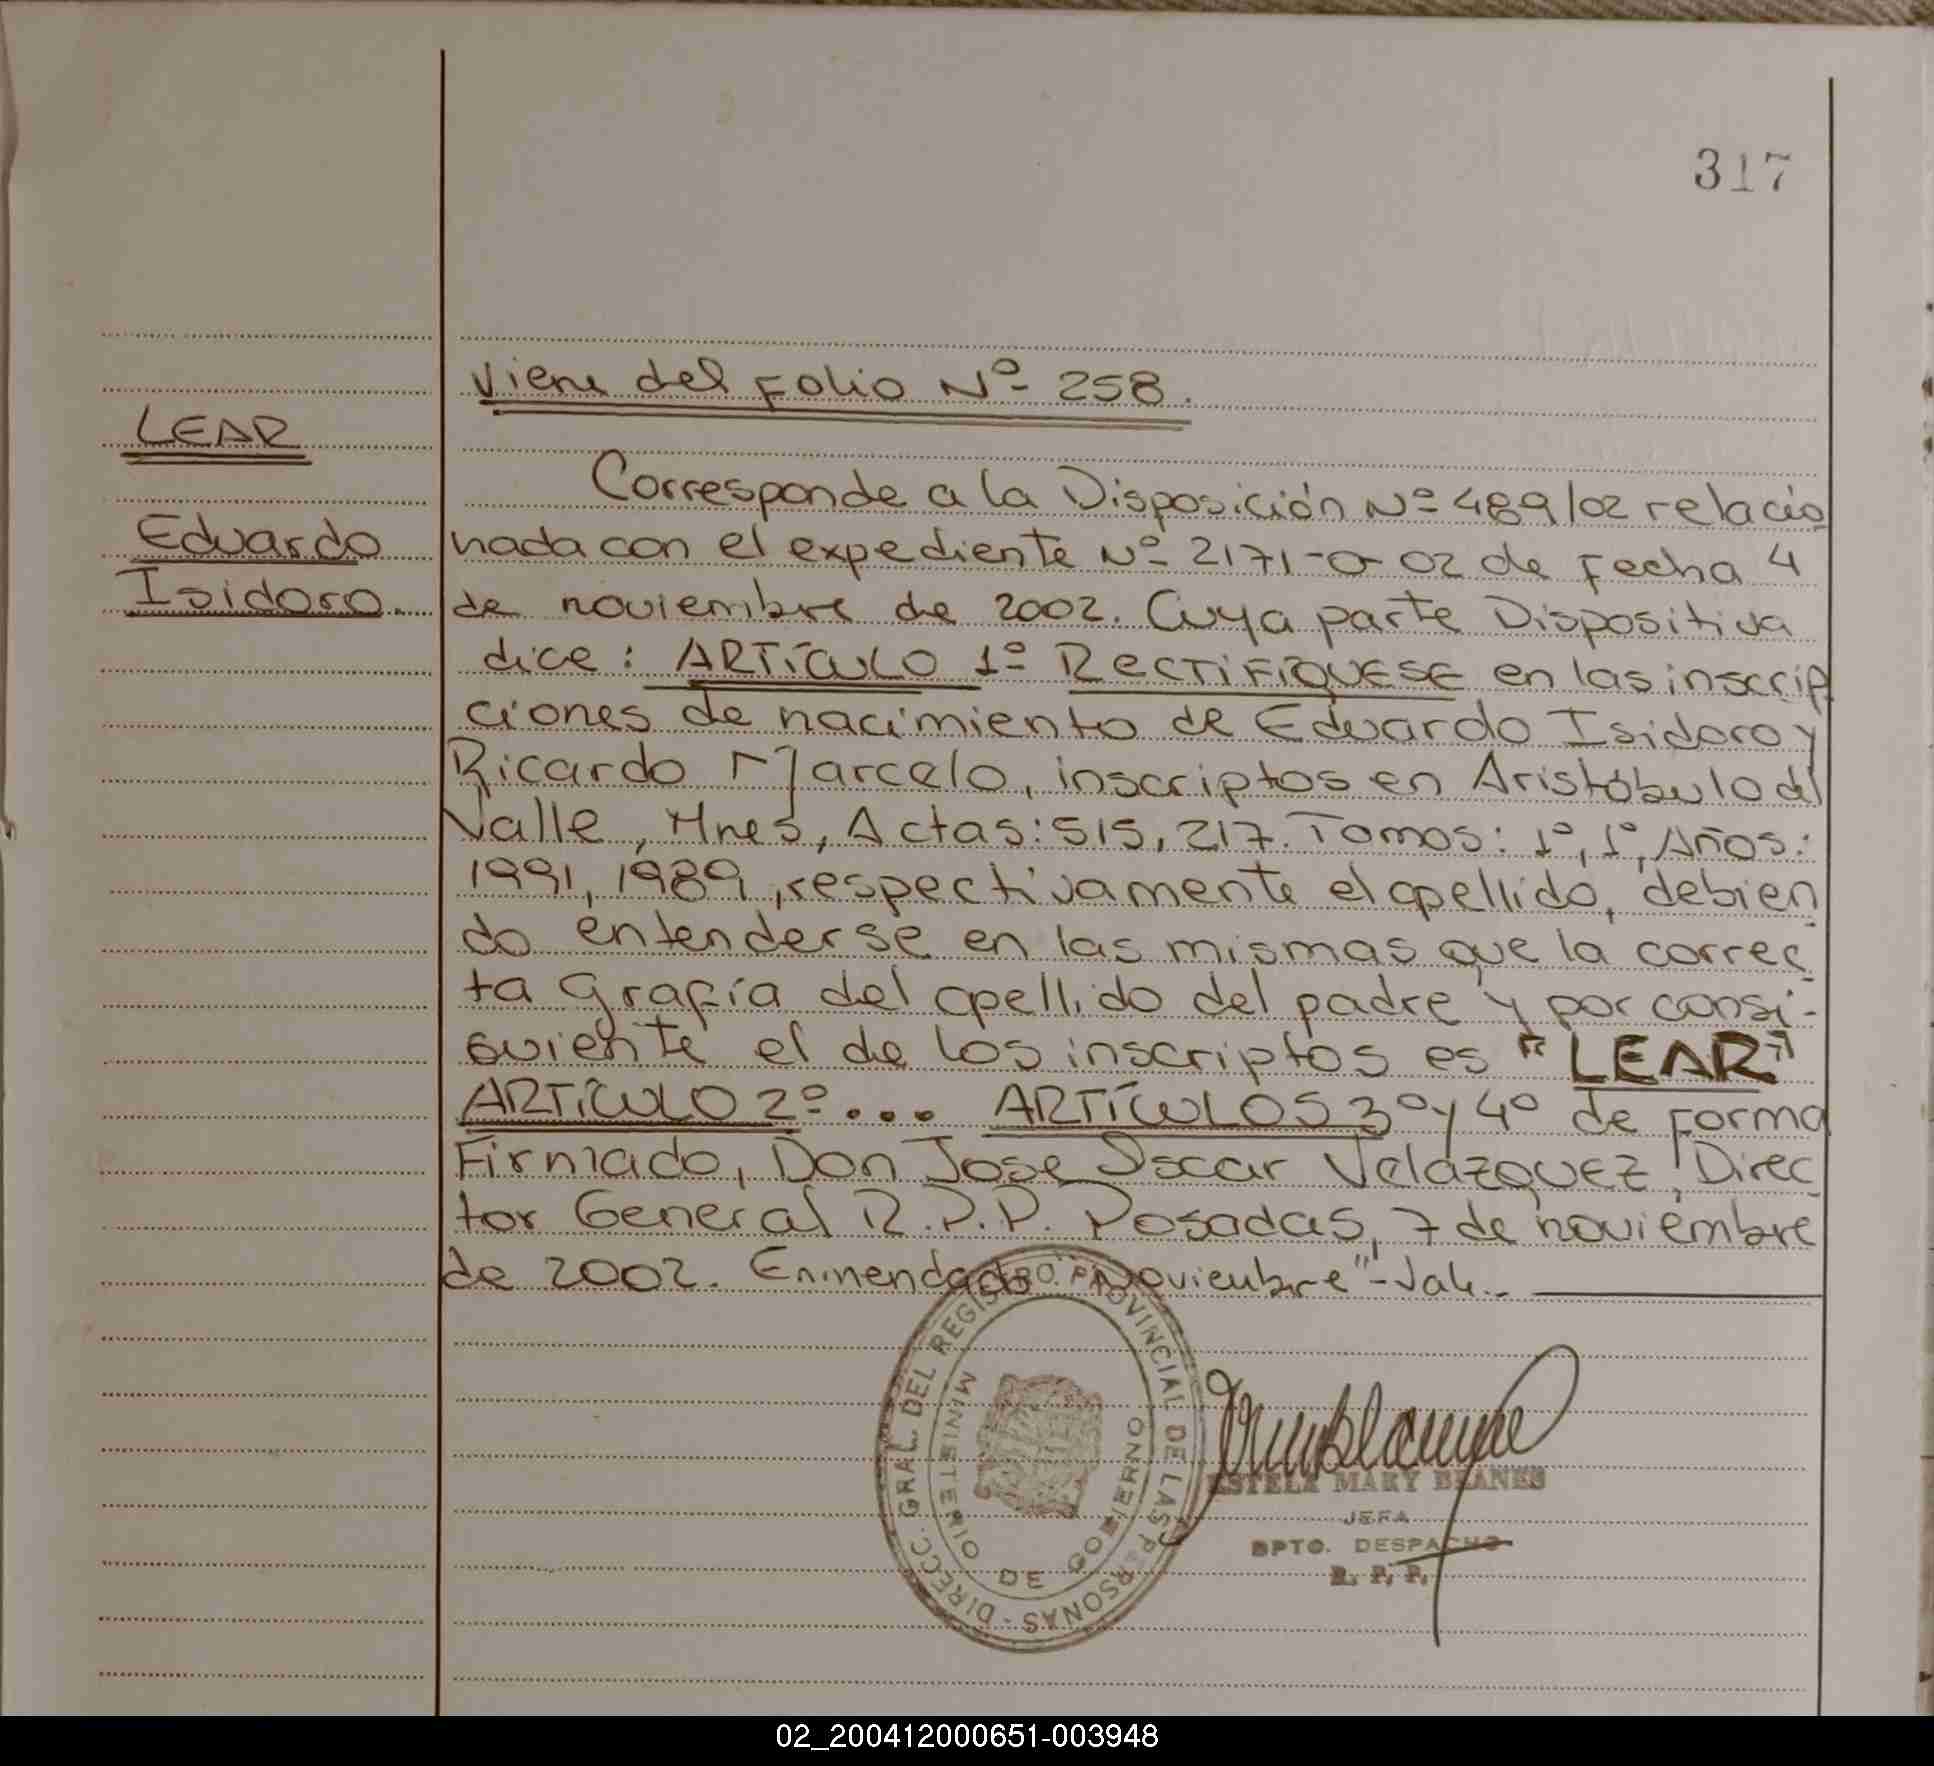 317
Viene del Folio Nº 258.
LEAR
Eduardo
Isidoro.
Corresponde a la Disposición Nº 489/02 relacio
nada con el expediente Nº 2171-O-02 de Fecha 4
de noviembre de 2002. Cuya parte Dispositiva
dice: ARTÍCULO 1º RECTIFIQUESE en las inscrip
ciones de nacimiento de Eduardo Isidoro y
Ricardo Marcelo, inscriptos en Aristóbulo del
Valle, Mnes, Actas: 515, 217. Tomos: 1º, 1º, Años:
1991, 1989, respectivamente el apellido, debien
do entenderse en las mismas que la correc
ta grafía del apellido del padre y por consi-
guiente el de los inscriptos es "LEAR"
ARTÍCULO 2º... ARTÍCULOS 3º y 4º de Forma
Firmado, Don Jose Oscar Velázquez, Direc
tor General R.P.P. Posadas, 7 de noviembre
de 2002. Enmendado "Noviembre"-Vale.-
DIRECC. GRAL. DEL REGISTRO PROVINCIAL DE LAS PERSONAS -
MINISTERIO DE GOBIERNO
ESTELA MARY BLANES
JEFA
DPTO. DESPACHO
R. P. P.
02_200412000651-003948